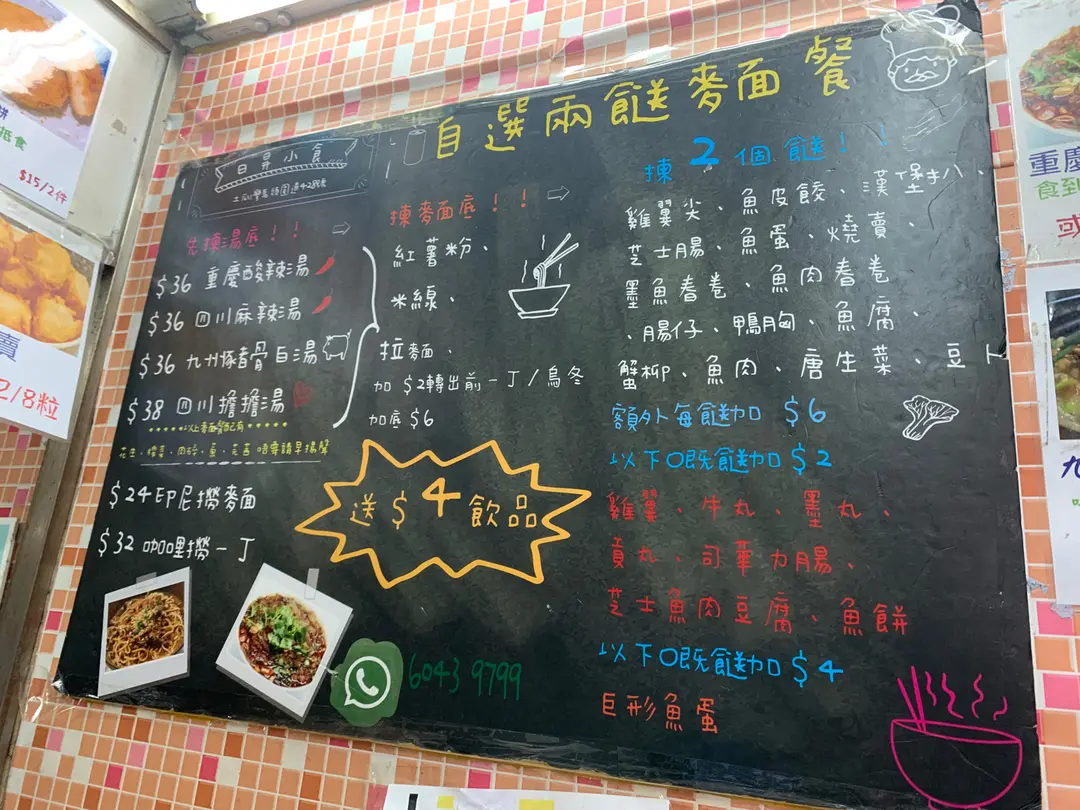 自選兩餸麥面餐
日昇小食
先揀湯底！！
$36 重慶酸辣湯
$36 四川麻辣湯
$36 九州豚骨白湯
$38 四川擔擔湯
$24 EP尼撈麵
$32 咖哩撈一丁
揀麥面底！！
紅薯粉、
米線、
拉麵、
加 $2轉出前一丁/烏冬
加底 $6
送 $4 飲品
6043 9799
揀 2 個餸！！
雞翼尖、魚皮餃、漢堡扒、
芝士腸、魚蛋、燒賣、
墨魚春卷、魚肉春卷
、腸仔、鴨胸、魚腐、
蟹柳、魚肉、唐生菜、豆卜
額外每餸加 $6
以下O既餸加 $2
雞翼、牛丸、墨丸、
貢丸、司華力腸、
芝士魚肉豆腐、魚餅
以下O既餸加 $4
巨形魚蛋
餅
抵食
$15/2件
賣
2/8粒
重慶
食到
或
九